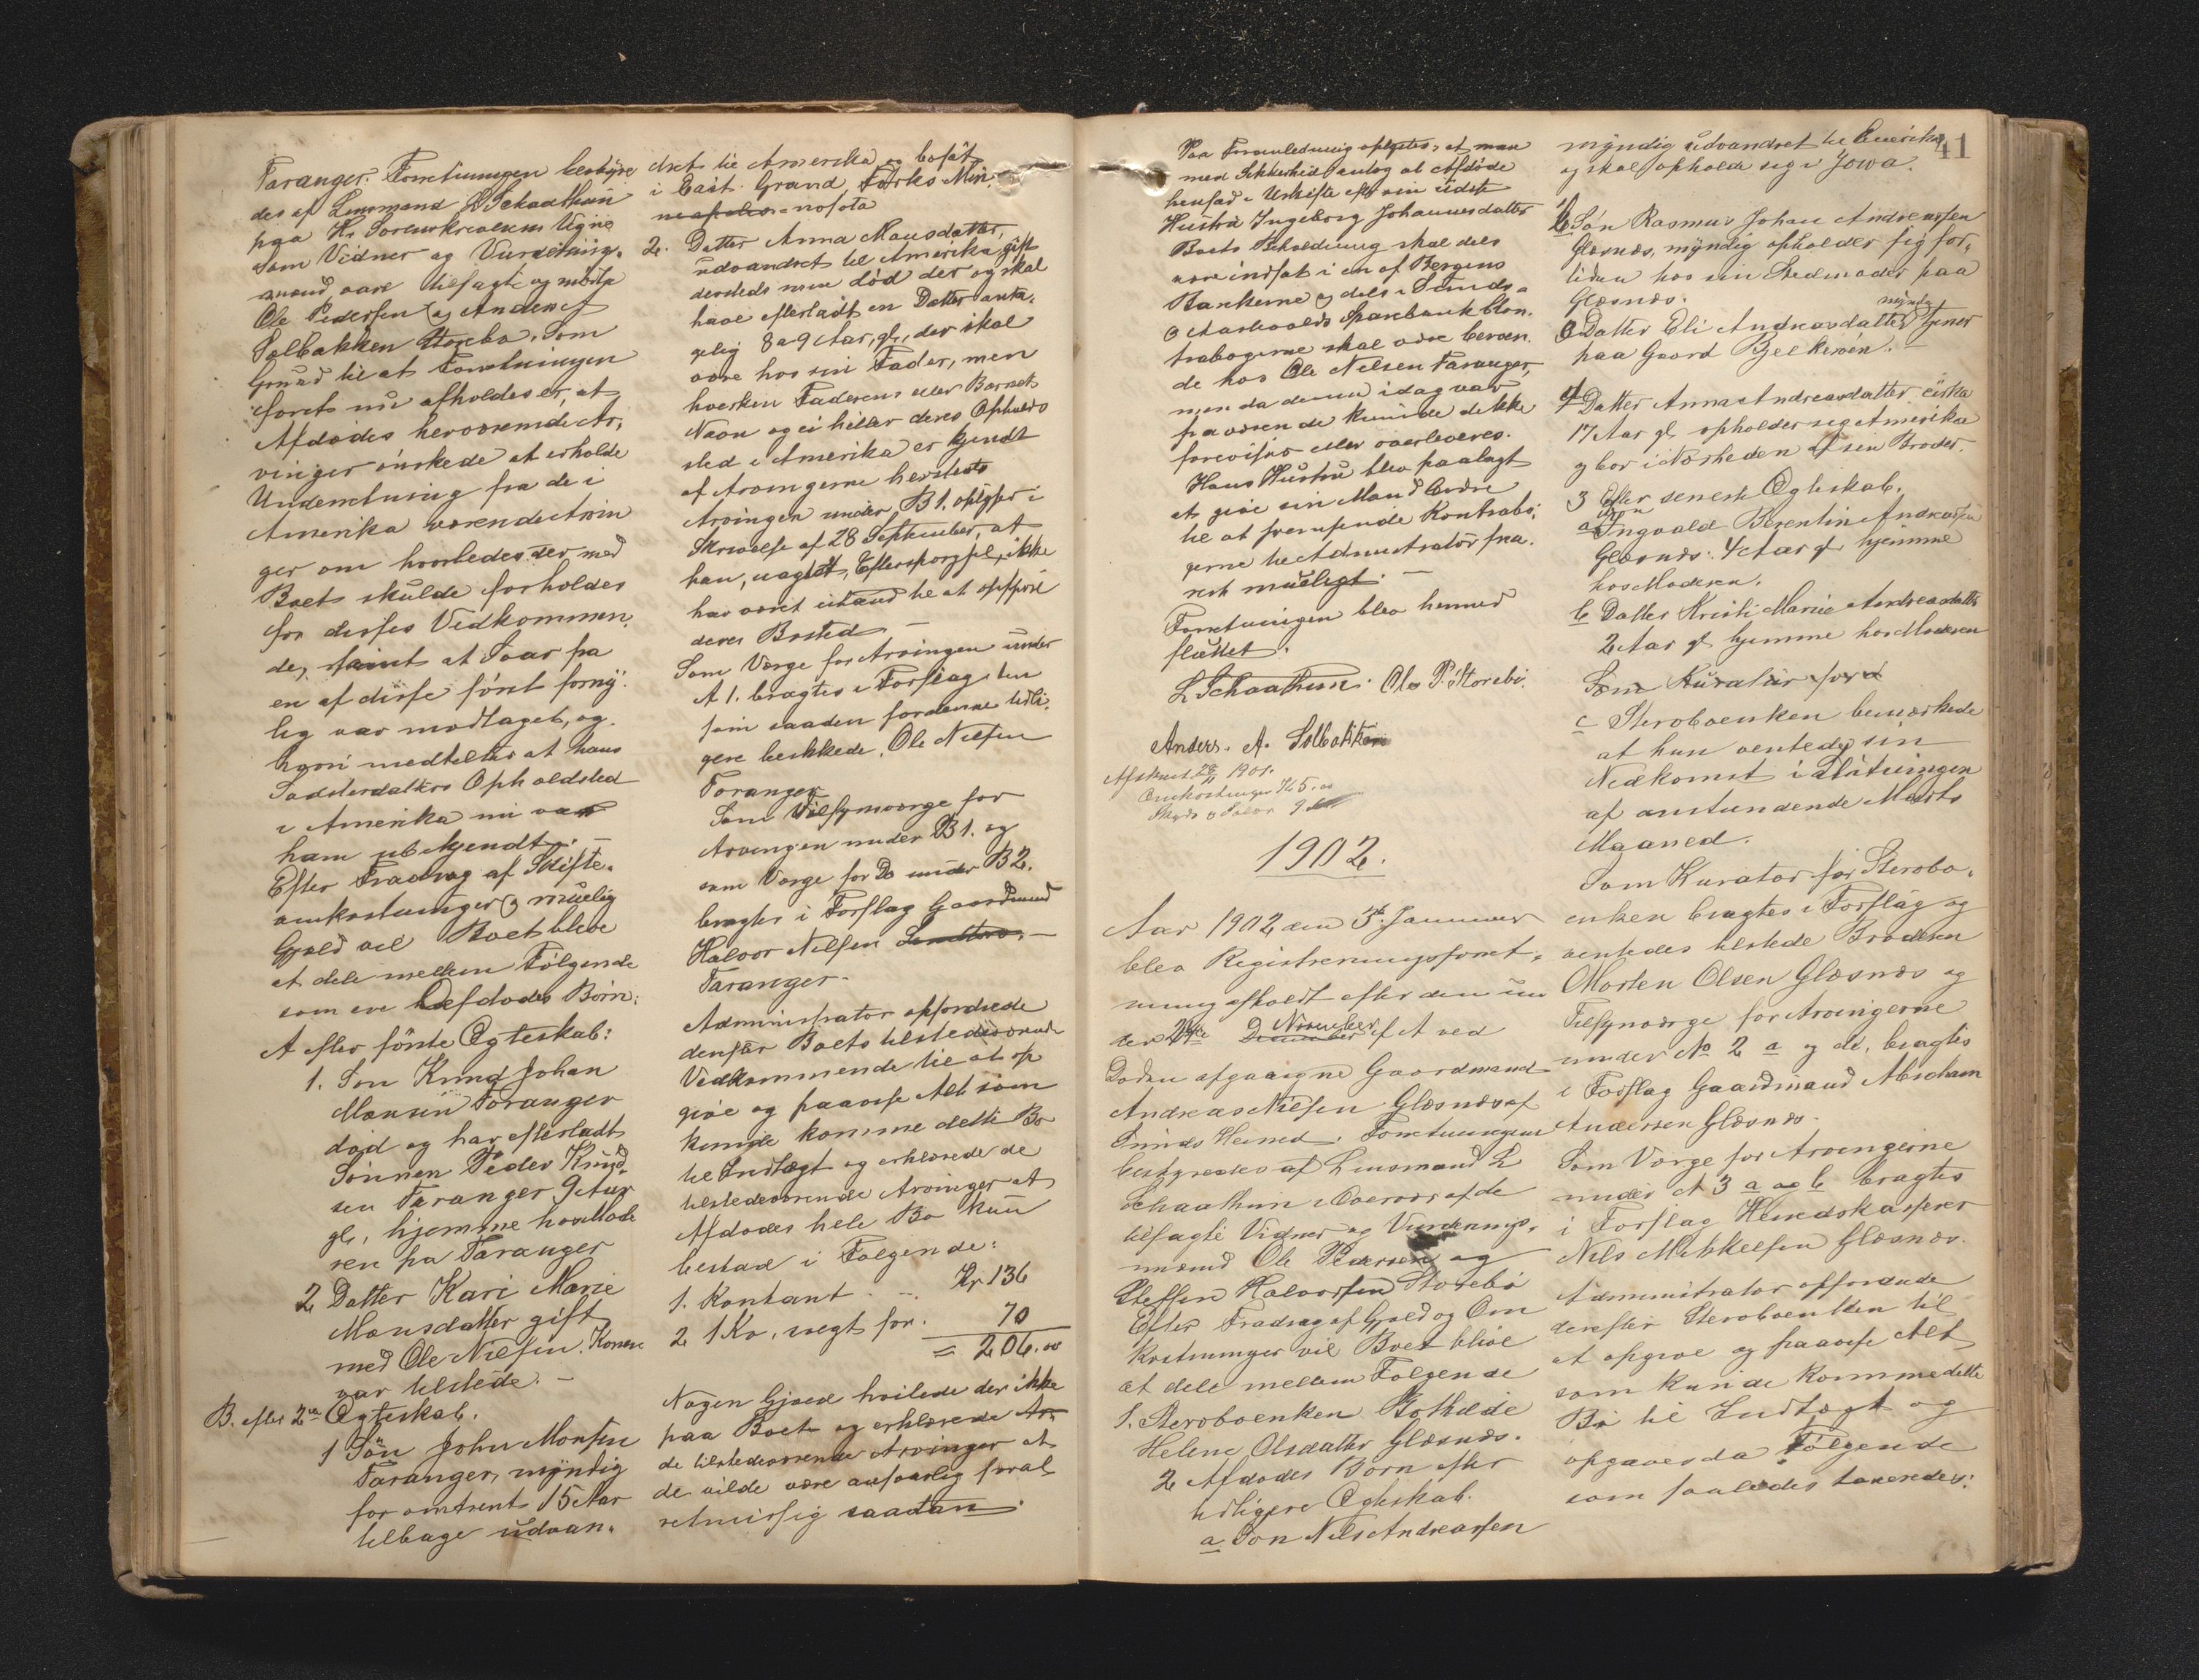 Taranger. Forretningen bestyre
des af Lensmand L Schaathun
paa Hr Sorenskriverens Vegne
Som Vidner og Vurderings-
mænd vare tilsagte og mødte
Ole Pedersen og Anders
Solbakken Storebø. Som
Grund til at Forretningen
først nu afholdes er, at
Afdødes herværende Ar-
vinger ønskede at erholde
Underretning fra de i
Amerika værende Arvin
ger om hvorledes der med
Boet skulde forholdes
for disses Vedkommen-
de, samt at Svar fra
en af disse først forny-
lig var modtaget, og
hvori meddeltes at hans
Søsterdatters Opholdsted
i Amerika nu var
ham ubekjendt. –
Efter Fradrag af Skifte-
omkostninger og muelig
Gjæld vil Boet blive
at dele mellem Følgende
som ere Afdødes Børn:
A efter første Ægteskab:
1. Søn Knud Johan
Monsen Taranger
død og har efterladt
Sønnen Peder Knud-
sen Taranger 9 Aar
gl, hjemme hos Mode
ren på Taranger
2 Datter Kari Marie
Monsdatter gift
med Ole Nilsen. Konen
var tilstede. –
B. efter 2det Ægteskab.
1 Søn John Monsen
Taranger, myndig
for omtrent 15 Aar
tilbage udvan-
dret til Amerika og bosat
i East Grand Forks Min-
neapolis = nesota
2. Datter Anna Monsdatter,
udvandret til Amerika gift
dersteds men død der og skal
have efterladt en Datter anta-
gelig 8 a 9 Aar, gl, der skal
være hos sin Fader, men
hverken Faderens eller Barnets
Navn og ei heller deres Opholds
sted i Amerika er kjendt
af Arvingerne hersteds
Arvingen under B 1. oplyser i
Skrivelse af 28 September, at
han, uagtet Efterspørgsel, ikke
har været istand til at opspore
deres Bosted –
Som Værge for Arvingen under
A 1. bragtes i Forslag den
som saadan for denne tidli-
gere beskikkede, Ole Nilsen
Taranger
Som Tilsynsværge for
Arvingen under B 1. og
som Værge for Do under B 2.
bragtes i Forslag Gaardmand
Halvor Nilsen
Taranger –
Administrator opfordrede
derefter Boets tilstedeværende
Vedkommende til at op
give og paavise Alt som
kunde komme dette Bo
til Indtægt og erklærede de
tilstedeværende Arvinger at
Afdødes hele Bo kun
bestod i Følgende:
1. Kontant . .. Kr 136
2 1 Ko, solgt for. 70
= 206.00
Nogen Gjæld hvilede der ikke
paa Boet og erklærede Ar-
de tilstedeværende Arvinger at
de vilde være ansvarlig foral
retmæssig saadan.
Paa Foranledning oplystes, at man
med Sikkerhed antog at Afdøde
hensad i Uskifte efter sin sidste
Hustru Ingeborg Johannesdatter
Boets Beholdning skal dels
være indsat i en af Bergens
Bankerne og dels i Sunds
og Austevolds Sparebank Kon-
trabøgerne skal være beroen-
de hos Ole Nilsen Taranger,
men da denne idag var
fraværende kunde de ikke
forevises eller overleveres.
Hans Hustru blev paalagt
at give sin Mand Ordre
til at fremsende Kontrabø-
gerne til Administrator sna-
rest mueligt. –
Forretningen blev hermed
sluttet.
L Schaathun. Ole P. Storebø.
Anders. A. Solbakken
Afskrevet 28/11 1901.
Omkostninger 5.00
1902.
Aar 1902 den 3die Januar
blev Registreringsforret-
ning afholdt efter den un
der 24de December November f A ved
Døden afgaaigne Gaardmand
Andreas Nilsen Glæsnæs af
Sunds Herred. Forretningen
bestyredes af Lensmand L
Schaathun i Overvær af de
tilsagte Vidner og Vurderings-
mænd Ole Pedersen og
Steffen Halvorsen Storebø
Efter Fradrag af Gjæld og Om
kostninger vil Boet blive
at dele mellem Følgende
1. Sterboenken Bothilde
Helene Olsdatter Glæsnæs.
2 Afdødes Børn efter
tidligere Ægteskab.
a Søn Nils Andreassen
41
myndig udvandret til Amerika
og skal opholde sig i Jowa.
b Søn Rasmus Johan Andreassen
Glæsnæs, myndig opholder sig for-
tiden hos sin Stedmoder paa
Glæsnæs.
c Datter Eli Andreasdatter myndig tjener
paa Gaard Bjelkerøen. –
d Datter Anna Andreasdatter cirka
17 Aar gl opholder sig Amerika
og bor i Nærheden af sin Broder.
3 Efter seneste Ægteskab.
a Søn Ingvald Berentin Andreassen
Glæsnæs. 4 Aar gl hjemme
hos Moderen.
b Datter Kristi Marie Andreasdatter
2 Aar gl hjemme hos Moderen
Som Kurator for d
c Sterboenken bemærkede
at hun ventede sin
Nedkomst i Slutningen
af anstundende Marts
Maaned.
Som Kurator for Sterbo-
enken bragtes i Forslag og
ventedes tilstede Broderen
Morten Olsen Glæsnæs og
Tilsynsværge for Arvingerne
under No 2 a og d, bragtes
i Forslag Gaardmand Abraham
Andersen Glæsnæs.
Som Værge for Arvingerne
under No 3 a og b bragtes
i Forslag Herredskasserer
Nils Mikkelsen Glæsnæs.
Administrator opfordrede
derefter Sterboenken til
at opgive og paavise Alt
som kunde komme dette
Bo til Indtægt og
opgaves da Følgende
som saaledes taxeredes: